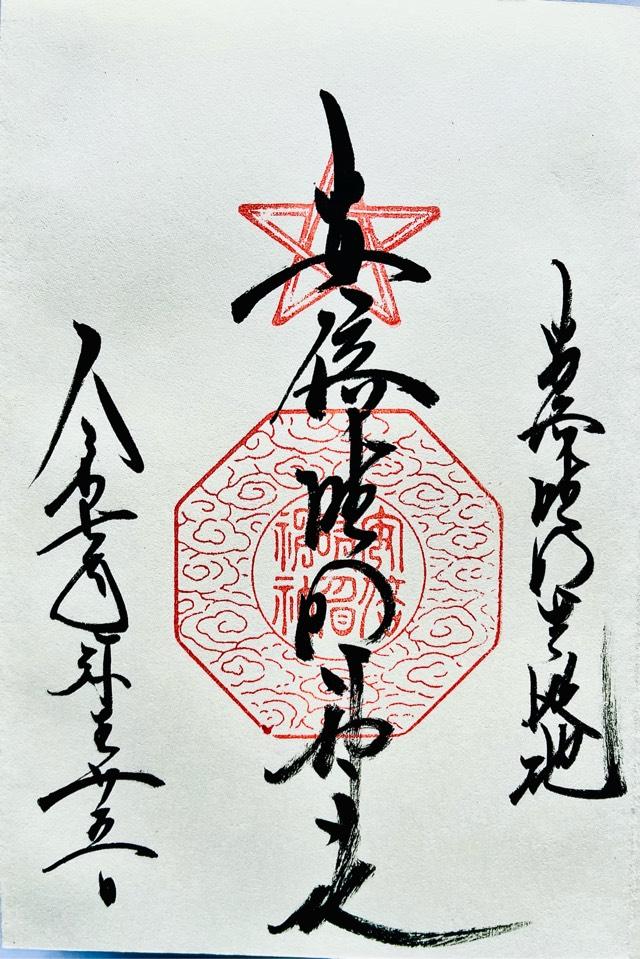 安倍晴明生誕地
安倍晴明神社
安倍
晴明
神社
令和七年
廿五日